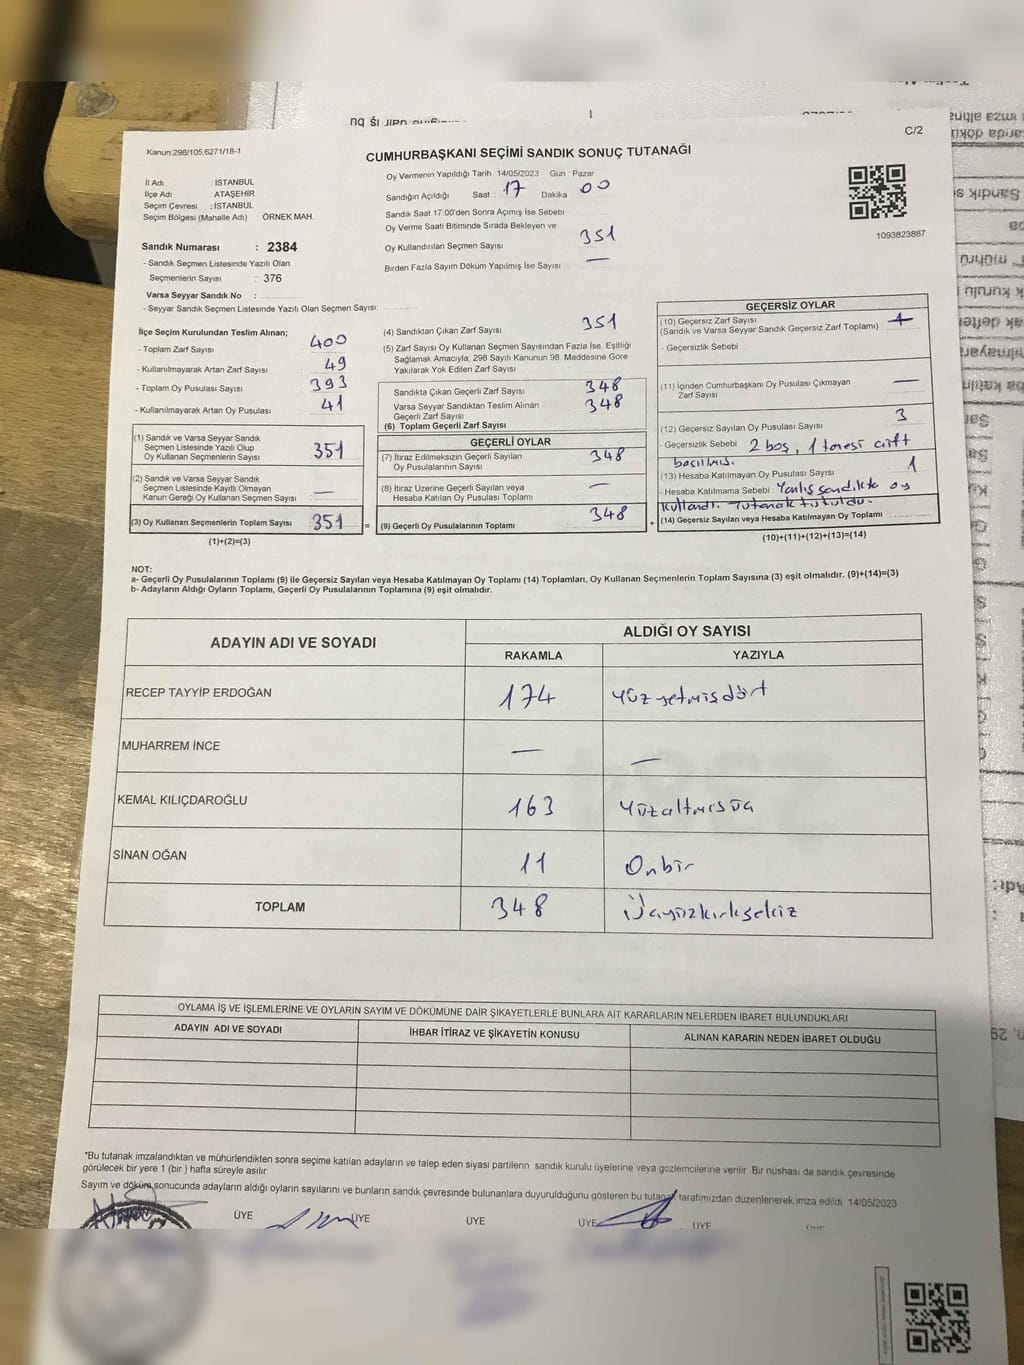 C/2
Kanun:298/105,6271/18-1
CUMHURBAŞKANI SEÇİMİ SANDIK SONUÇ TUTANAĞI
İl Adı : İSTANBUL
İlçe Adı : ATAŞEHİR
Seçim Çevresi : İSTANBUL
Seçim Bölgesi (Mahalle Adı) : ÖRNEK MAH.
Sandık Numarası : 2384
- Sandık Seçmen Listesinde Yazılı Olan
Seçmenlerin Sayısı : 376
Varsa Seyyar Sandık No :
- Seyyar Sandık Seçmen Listesinde Yazılı Olan Seçmen Sayısı:
Oy Vermenin Yapıldığı Tarih 14/05/2023 Gün : Pazar
Sandığın Açıldığı Saat : 17 Dakika 00
Sandık Saat 17:00'den Sonra Açımış İse Sebebi
Oy Verme Saati Bitiminde Sırada Bekleyen ve
Oy Kullandırılan Seçmen Sayısı 351
Birden Fazla Sayım Döküm Yapılmış İse Sayısı —
1093823887
İlçe Seçim Kurulundan Teslim Alınan;
- Toplam Zarf Sayısı 400
- Kullanılmayarak Artan Zarf Sayısı 49
- Toplam Oy Pusulası Sayısı 393
- Kullanılmayarak Artan Oy Pusulası 41
(1) Sandık ve Varsa Seyyar Sandık
Seçmen Listesinde Yazılı Olup
Oy Kullanan Seçmenlerin Sayısı 351
(2) Sandık ve Varsa Seyyar Sandık
Seçmen Listesinde Kayıtlı Olmayan
Kanun Gereği Oy Kullanan Seçmen Sayısı —
(3) Oy Kullanan Seçmenlerin Toplam Sayısı 351 =
(1)+(2)=(3)
(4) Sandıktan Çıkan Zarf Sayısı 351
(5) Zarf Sayısı Oy Kullanan Seçmen Sayısından Fazla İse, Eşitliği
Sağlamak Amacıyla, 298 Sayılı Kanunun 98. Maddesine Göre
Yakılarak Yok Edilen Zarf Sayısı
Sandıkta Çıkan Geçerli Zarf Sayısı 348
Varsa Seyyar Sandıktan Teslim Alınan
Geçerli Zarf Sayısı 348
(6) Toplam Geçerli Zarf Sayısı
GEÇERLİ OYLAR
(7) İtiraz Edilmeksizin Geçerli Sayılan
Oy Pusulalarının Sayısı 348
(8) İtiraz Üzerine Geçerli Sayılan veya
Hesaba Katılan Oy Pusulası Toplamı —
(9) Geçerli Oy Pusulalarının Toplamı 348 +
GEÇERSİZ OYLAR
(10) Geçersiz Zarf Sayısı
(Sandık ve Varsa Seyyar Sandık Geçersiz Zarf Toplamı)
- Geçersizlik Sebebi
(11) İçinden Cumhurbaşkanı Oy Pusulası Çıkmayan
Zarf Sayısı —
(12) Geçersiz Sayılan Oy Pusulası Sayısı 3
- Geçersizlik Sebebi 2 boş, 1 tanesi çift
basılmış.
(13) Hesaba Katılmayan Oy Pusulası Sayısı 1
- Hesaba Katılmama Sebebi Yanlış sandıkta oy
kullandı. Tutanak tutuldu.
(14) Geçersiz Sayılan veya Hesaba Katılmayan Oy Toplamı
(10)+(11)+(12)+(13)=(14)
NOT:
a- Geçerli Oy Pusulalarının Toplamı (9) ile Geçersiz Sayılan veya Hesaba Katılmayan Oy Toplamı (14) Toplamları, Oy Kullanan Seçmenlerin Toplam Sayısına (3) eşit olmalıdır. (9)+(14)=(3)
b- Adayların Aldığı Oyların Toplamı, Geçerli Oy Pusulalarının Toplamına (9) eşit olmalıdır.
ADAYIN ADI VE SOYADI
ALDIĞI OY SAYISI
RAKAMLA YAZIYLA
RECEP TAYYİP ERDOĞAN 174 Yüz yetmişdört
MUHARREM İNCE — —
KEMAL KILIÇDAROĞLU 163 Yüzaltmışüç
SİNAN OĞAN 11 Onbir
TOPLAM 348 Üçyüzkırksekiz
OYLAMA İŞ VE İŞLEMLERİNE VE OYLARIN SAYIM VE DÖKÜMÜNE DAİR ŞİKAYETLERLE BUNLARA AİT KARARLARIN NELERDEN İBARET BULUNDUKLARI
ADAYIN ADI VE SOYADI İHBAR İTİRAZ VE ŞİKAYETİN KONUSU ALINAN KARARIN NEDEN İBARET OLDUĞU
*Bu tutanak imzalandıktan ve mühürlendikten sonra seçime katılan adayların ve talep eden siyasi partilerin sandık kurulu üyelerine veya gözlemcilerine verilir. Bir nüshası da sandık çevresinde
görülecek bir yere 1 (bir ) hafta süreyle asılır.
Sayım ve döküm sonucunda adayların aldığı oyların sayılarını ve bunların sandık çevresinde bulunanlara duyurulduğunu gösteren bu tutanak tarafımızdan düzenlenerek imza edildi. 14/05/2023
ÜYE ÜYE ÜYE ÜYE ÜYE